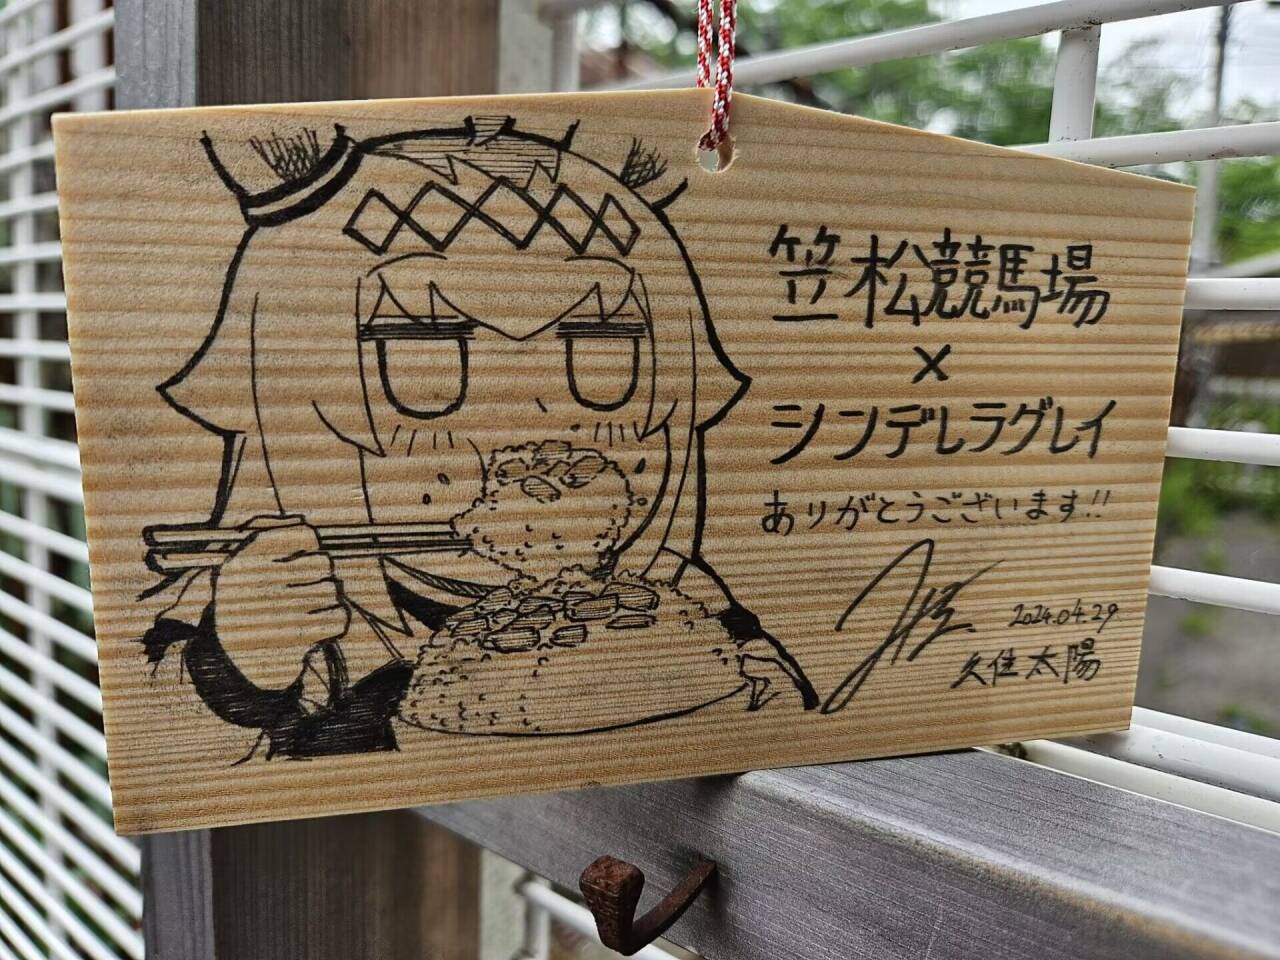 笠松競馬場
×
シンデレラグレイ
ありがとうございます!!
2024.04.29
久住太陽